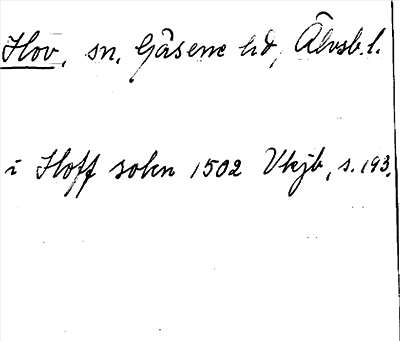 Hov, sn, Gäsene hd, Älvsb. l.
i Hoff sokn 1502 Vkjb, s. 193.